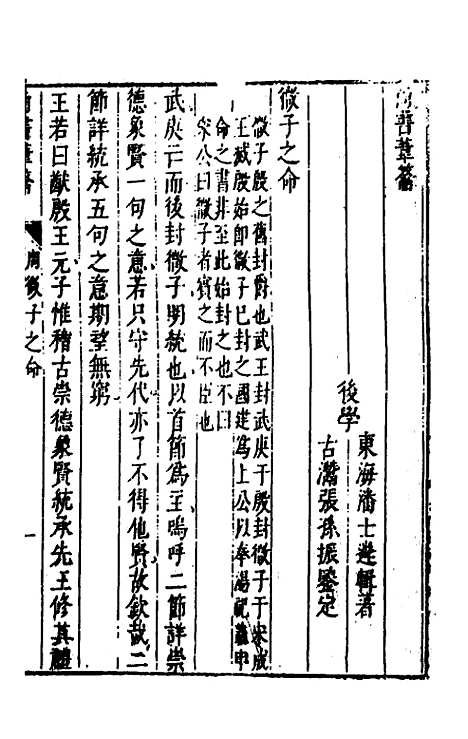 尚書葦籥
後學
東海潘士遴輯著
古灊張孫振鑒定
微子之命
微子殷之舊封爵也武王封武庚于殷封微子于宋成
王滅殷始即微子已封之國建為上公以奉湯祀蓋申
命之書非至此始封之也不曰
宋公曰微子者賓之而不臣也
武庚亡而後封微子明統也以首節為主嗚呼二節詳崇
德象賢一句之意若只守先代亦了不得他賢故欽哉二
節詳統承五句之意期望無窮
王若曰猷殷王元子惟稽古崇德象賢統承先王修其禮
尚書葦籥
周微子之命
一